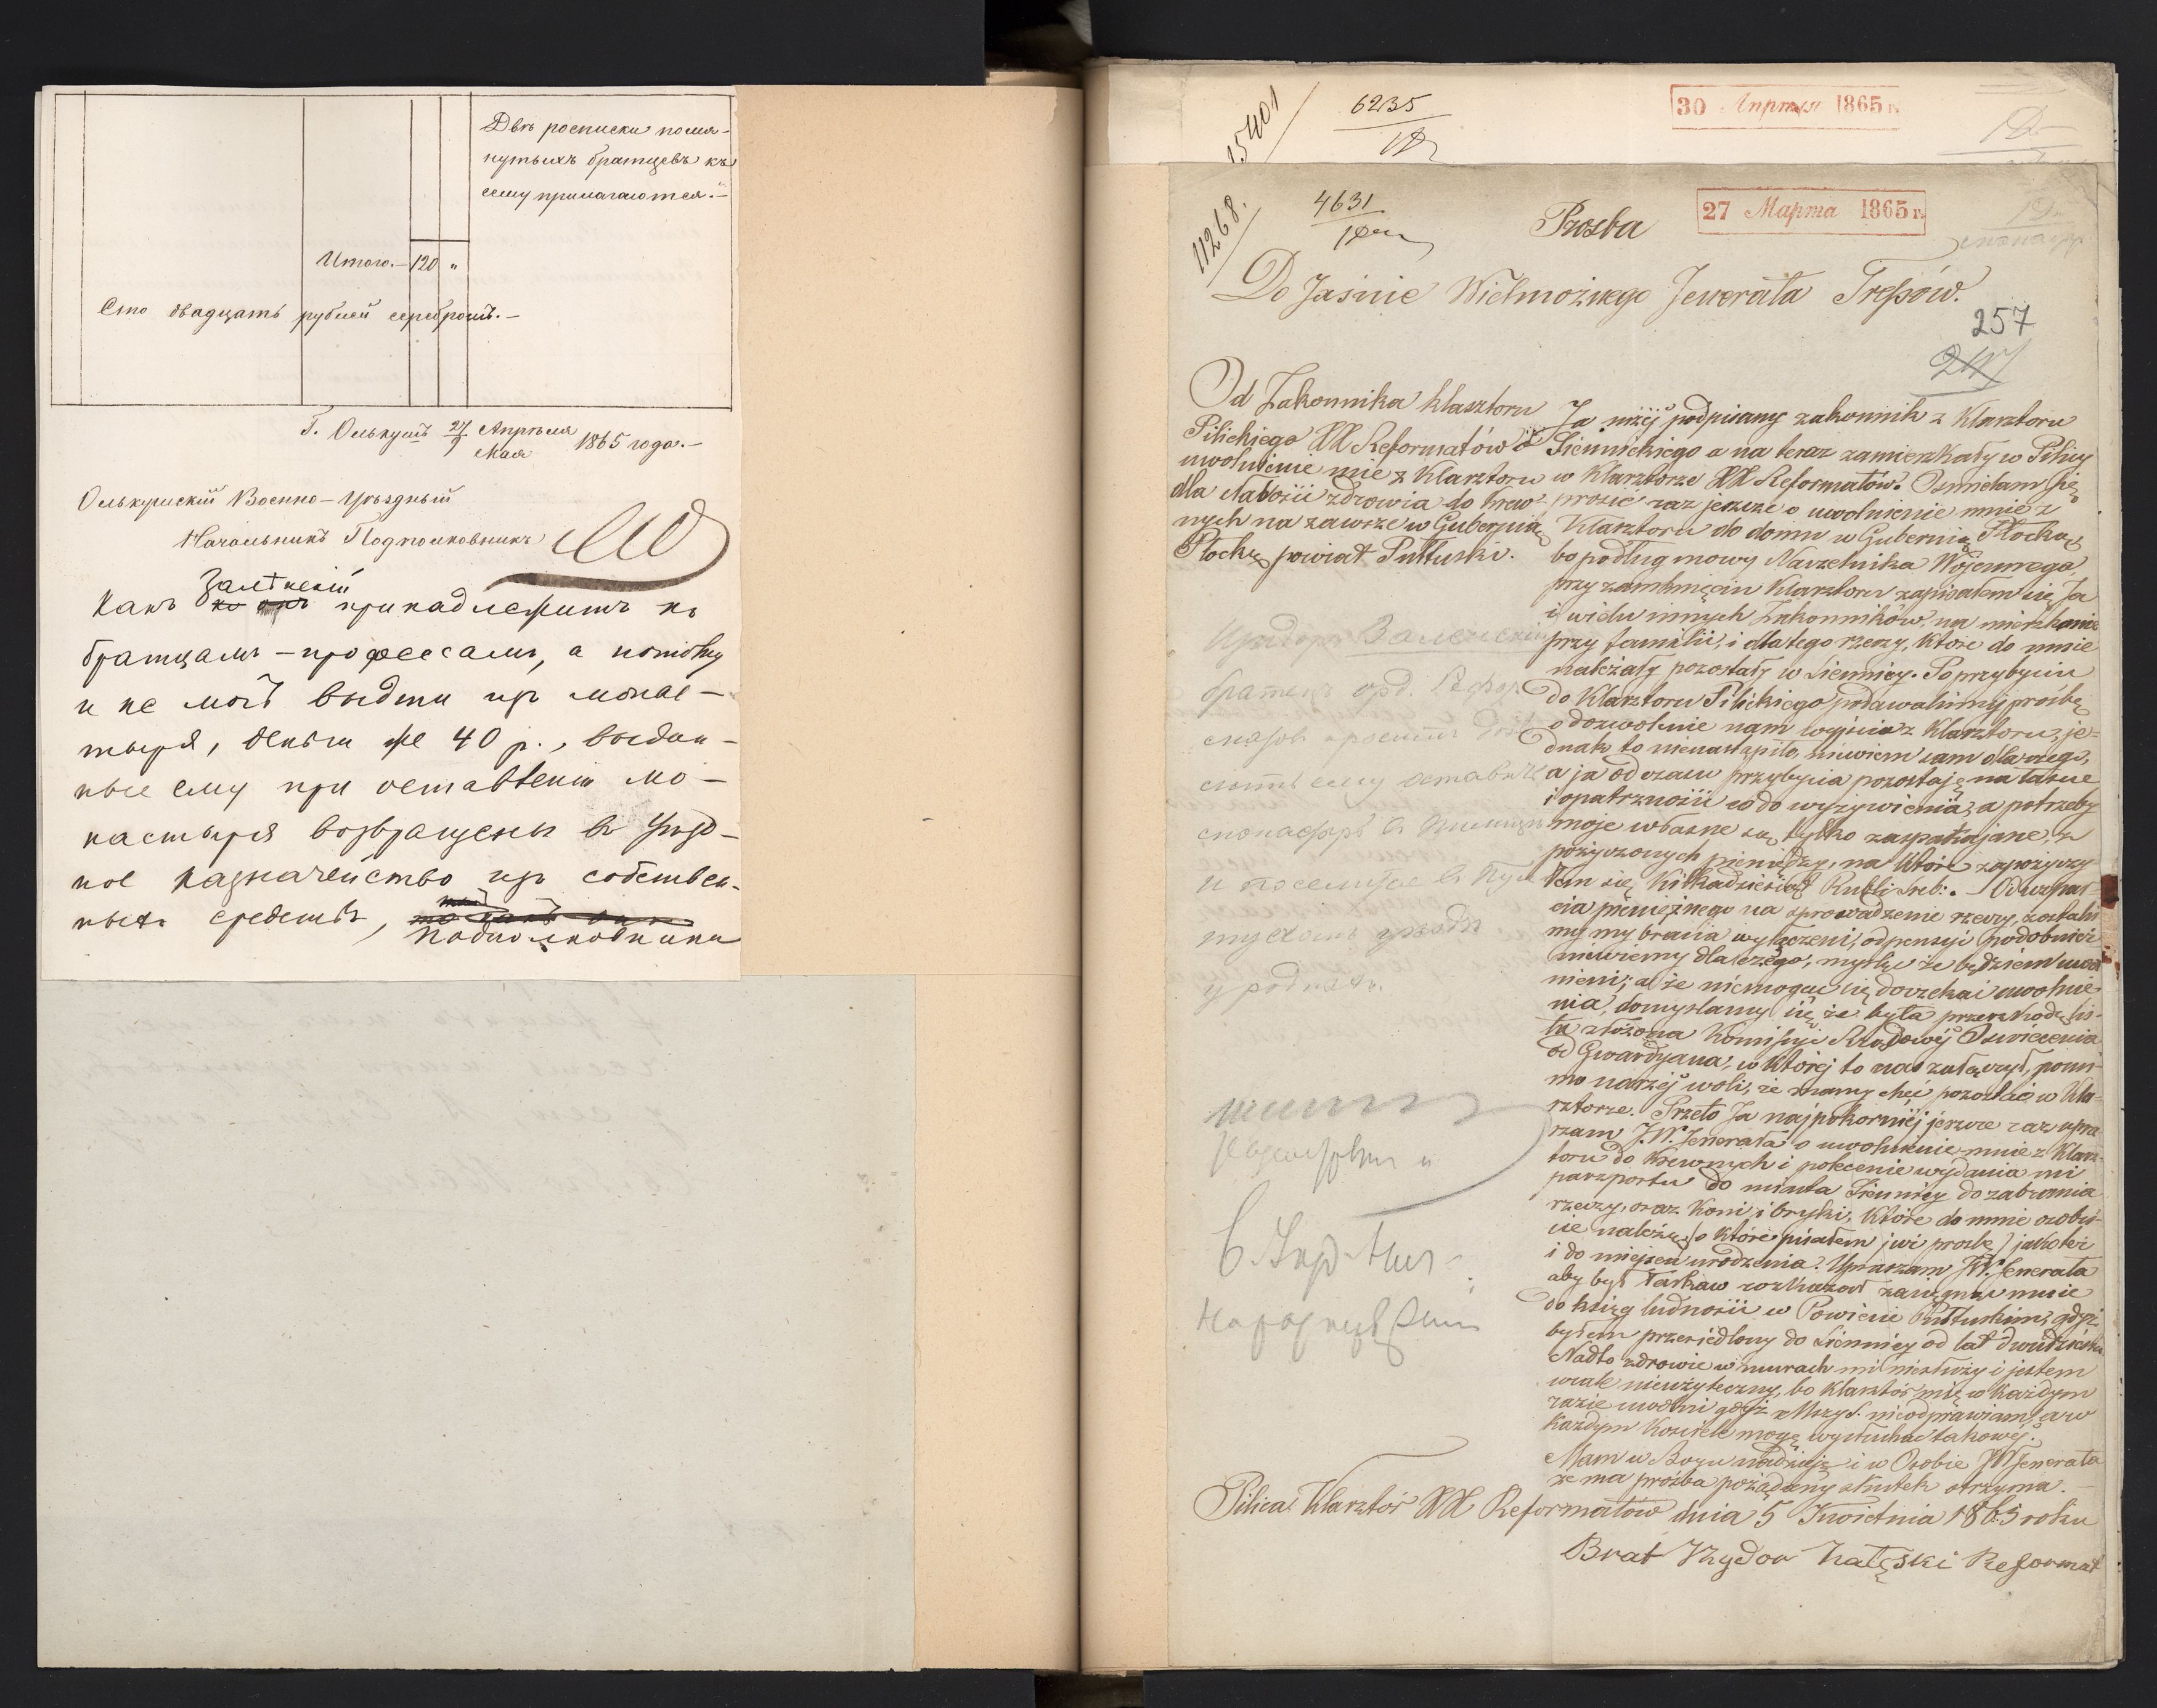 Двѣ росписки помя-
нутыхъ братцевъ къ
сему прилагаются.-
Итого.- 120 "
Сто двадцать рублей серебромъ.-
Г. Олькушъ 27/9 Апрѣля/Мая 1865 года.-
Олькушскій Военно-Уѣздный
Начальникъ Подполковникъ
Залѣнскій
какъ принадлежитъ къ
братцамъ-профессамъ, а потому
и не могъ выдти изъ монас-
тыря, деньги же 40 р., выдан-
ные ему при оставленіи мо-
настыря возвращены въ Уѣзд-
ное казначейство изъ собствен-
ныхъ средствъ,
подполковника
15401
6235
30 Апрѣля 1865 г.
11268.
4631
Prosba
27 Марта 1865 г.
Do Jaśnie Wielmożnego Jenerała Trepow.
257
247
Od Zakonnika Klasztoru
Pilickiego XX Reformatów o
uwolnienie mie z Klasztoru
dla słabości zdrowia do krew-
nych na zawsze w Gubernią
Płocką powiat Pułtuski.
Ja niżéj podpisany zakonnik z Klasztoru
Siennickiego a na teraz zamieszkały w Pilicy
w Klasztorze XX Reformatów. Ośmielam się
prosić raz jeszcze o uwolnienie mnie z
Klasztoru do domu w Gubernią Płocką,
bo podług mowy Naczelnika Wojennego,
przy zamknięciu Klasztoru zapisałem się Ja
i wielu innych Zakonników, na mieszkanie
przy familii, i dlatego rzeczy, które do mnie
należały pozostały w Siennicy. Po przybyciu
do Klasztoru Pilickiego podawaliśmy prośbę
o dozwolenie nam wyjścia z Klasztoru, je-
dnak to nienastąpiło, niewiem sam dlaczego,
a ja od czasu przybycia pozostaję na łasce
i opatrzności co do wyżywienia, a potrzeby
moje własne są tylko zaspakajane, z
pożyczonych pieniędzy, na które zapożyczy-
łem się Kilkadziesiąt Rubli sreb:. Od wspar-
cia pieniężnego na sprowadzenie rzeczy, zostali
my my bracia wyłączeni, od pensyi podobnież
niewiemy dlaczego, myślę że będziem uwol
nieni; a że niemogąc się doczekać uwolnie-
nia, domyślamy się że była przeszkodą lis-
ta złożona Komisyi Rządowéj Oświecenia
od Gwardyana, w której to nas załączył, pomi-
mo naszéj woli, że mamy chęć pozostać w Kla-
sztorze. Przeto Ja najpokorniéj jeszcze raz upra
szam J.W. Jenerała o uwolnienie mnie z Klasz-
toru do Krewnych i polecenie wydania mi
paszportu do miasta Siennicy do zabrania
rzeczy, oraz Koni, i bryki, które do mnie osobiś-
cie należą (o które pisałem już prośbę) jakoteż
i do miejsca urodzenia. Upraszam JW. Jenerała
aby był łaskaw rozkazać zapisać mnie
do ksiąg ludności w Powiecie Pułtuskim, gdyż
byłem przesiedlony do Siennicy od lat dwudziestu
Nadto zdrowie w murach mi niesłuży i jestem
wcale nieużyteczny, bo Klasztór mię w każdym
razie uwolni gdyż Mszy S. nieodprawiam, a w
każdym Kościele mogę wysłuchać takowéj.
Mam w Bogu nadzieję i w Osobie JWJenerała
że ma prośba pożądany skutek otrzyma.-
Pilica Klasztór XX Reformatów dnia 5 Kwietnia 1865 roku
Brat Izydor Załęski Reformat